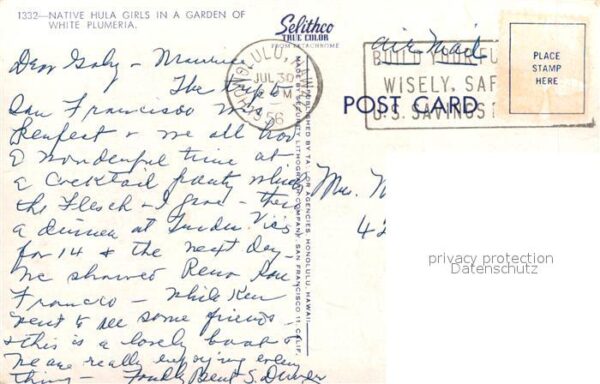 1332—NATIVE HULA GIRLS IN A GARDEN OF
WHITE PLUMERIA.
Selithco
TRUE COLOR
FROM EKTACHROME
air mail
HONOLULU, HAWAII
JUL 30
PM
56
BUILD YOUR FU
WISELY, SAF
U.S. SAVINGS
PLACE
STAMP
HERE
POST CARD
PUBLISHED BY TAYLOR AGENCIES, HONOLULU, HAWAII
MADE BY SECURITY LITHOGRAPH COMPANY, SAN FRANCISCO 11, CALIF.
Dear Gaby - Maurice
The trip to
San Francisco was
Perfect & we all had
a wonderful time at
a Cocktail party which
the Flesch - I gave - then
a dinner at Trader Vics
for 14 & the next day
we showed Reno San
Francisco - While Ken
went to see some friends -
& this is a lovely boat &
we are really enjoying every
thing - Fondly Bent S.
Mrs. M
42
privacy protection
Datenschutz